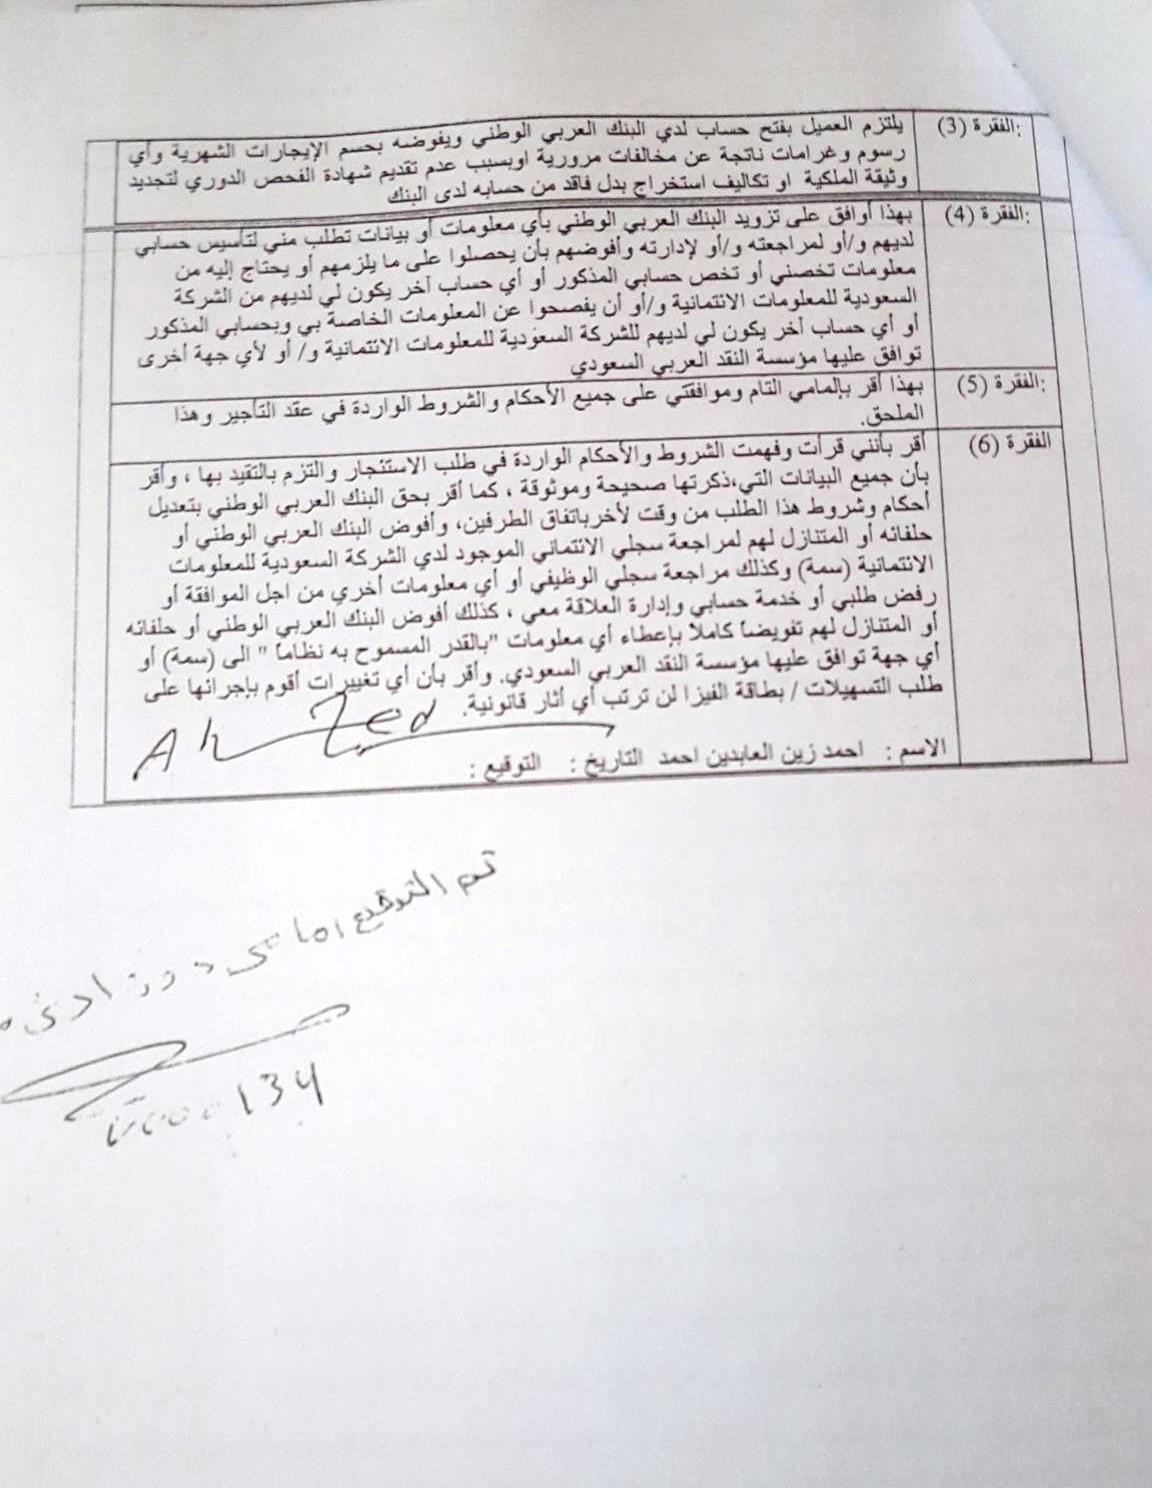 الفقرة (3):
يلتزم العميل بفتح حساب لدي البنك العربي الوطني ويفوضه بحسم الإيجارات الشهرية وأي
رسوم وغرامات ناتجة عن مخالفات مرورية اوبسبب عدم تقديم شهادة الفحص الدوري لتجديد
وثيقة الملكية او تكاليف استخراج بدل فاقد من حسابه لدى البنك
الفقرة (4):
بهذا أوافق على تزويد البنك العربي الوطني بأي معلومات أو بيانات تطلب مني لتأسيس حسابي
لديهم و/أو لمراجعته و/أو لإدارته وأفوضهم بأن يحصلوا على ما يلزمهم أو يحتاج إليه من
معلومات تخصني أو تخص حسابي المذكور أو أي حساب أخر يكون لي لديهم من الشركة
السعودية للمعلومات الائتمانية و/أو أن يفصحوا عن المعلومات الخاصة بي وبحسابي المذكور
أو أي حساب أخر يكون لي لديهم للشركة السعودية للمعلومات الائتمانية و/ أو لأي جهة أخرى
توافق عليها مؤسسة النقد العربي السعودي
الفقرة (5):
بهذا أقر بإلمامي التام وموافقتي على جميع الأحكام والشروط الواردة في عقد التأجير وهذا
الملحق.
الفقرة (6)
أقر بأنني قرأت وفهمت الشروط والأحكام الواردة في طلب الاستئجار والتزم بالتقيد بها ، وأقر
بأن جميع البيانات التي،ذكرتها صحيحة وموثوقة ، كما أقر بحق البنك العربي الوطني بتعديل
أحكام وشروط هذا الطلب من وقت لأخرباتفاق الطرفين، وأفوض البنك العربي الوطني أو
حلفائه أو المتنازل لهم لمراجعة سجلي الائتماني الموجود لدي الشركة السعودية للمعلومات
الائتمانية (سمة) وكذلك مراجعة سجلي الوظيفي أو أي معلومات أخري من اجل الموافقة أو
رفض طلبي أو خدمة حسابي وإدارة العلاقة معي ، كذلك أفوض البنك العربي الوطني أو حلفائه
أو المتنازل لهم تفويضاً كاملاً بإعطاء أي معلومات "بالقدر المسموح به نظاماً " الى (سمة) أو
أي جهة توافق عليها مؤسسة النقد العربي السعودي. وأقر بأن أي تغييرات أقوم بإجرائها على
طلب التسهيلات / بطاقة الفيزا لن ترتب أي أثار قانونية.
Ahmed
الاسم : احمد زين العابدين احمد التاريخ : التوقيع :
تم التوقيع امامي دون ادنى